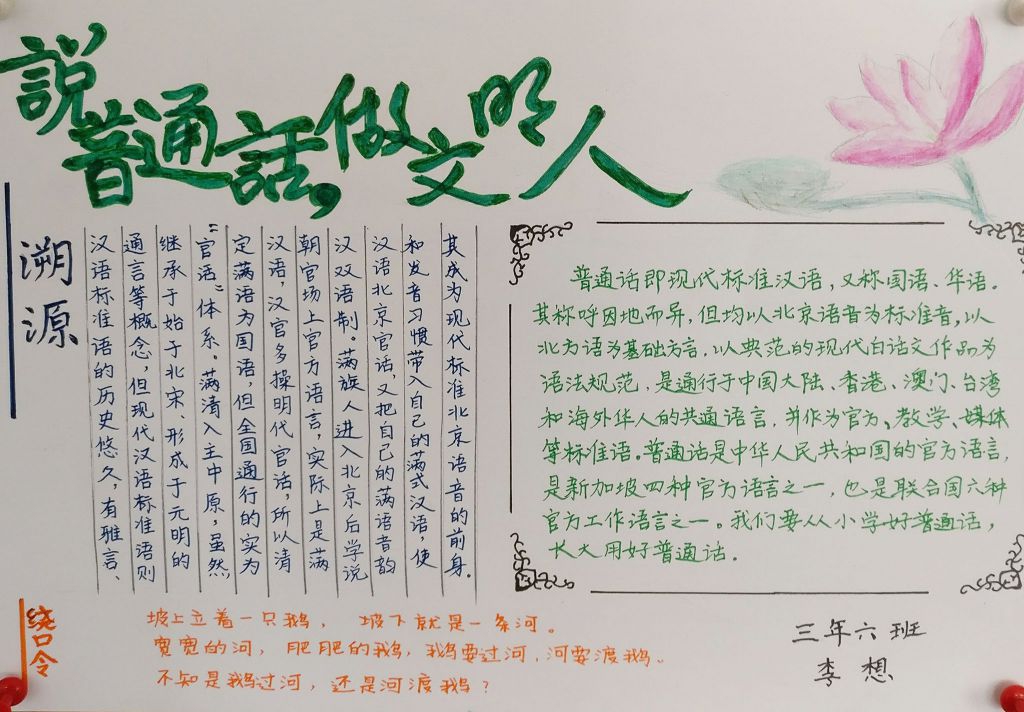 說普通話,做文明人
溯源
汉语标准语的历史悠久,有雅言、
通言等概念,但现代汉语标准语则
继承于始于北宋、形成于元明的
“官话”体系。满清入主中原,虽然
定满语为国语,但全国通行的实为
汉语,汉官多操明代官话,所以清
朝官场上官方语言,实际上是满
汉双语制。满族人进入北京后学说
汉语北京官话,又把自己的满语音韵
和发音习惯带入自己的满式汉语,使
其成为现代标准北京语音的前身.
普通话即现代标准汉语,又称国语、华语.
其称呼因地而异,但均以北京语音为标准音,以
北方语为基础方言,以典范的现代白话文作品为
语法规范,是通行于中国大陆、香港、澳门、台湾
和海外华人的共通语言,并作为官方、教学、媒体
等标准语.普通话是中华人民共和国的官方语言,
是新加坡四种官方语言之一,也是联合国六种
官方工作语言之一。我们要从小学好普通话,
长大用好普通话.
绕口令
坡上立着一只鹅,坡下就是一条河。
宽宽的河,肥肥的鹅,鹅要过河,河要渡鹅。
不知是鹅过河,还是河渡鹅?
三年六班
李想